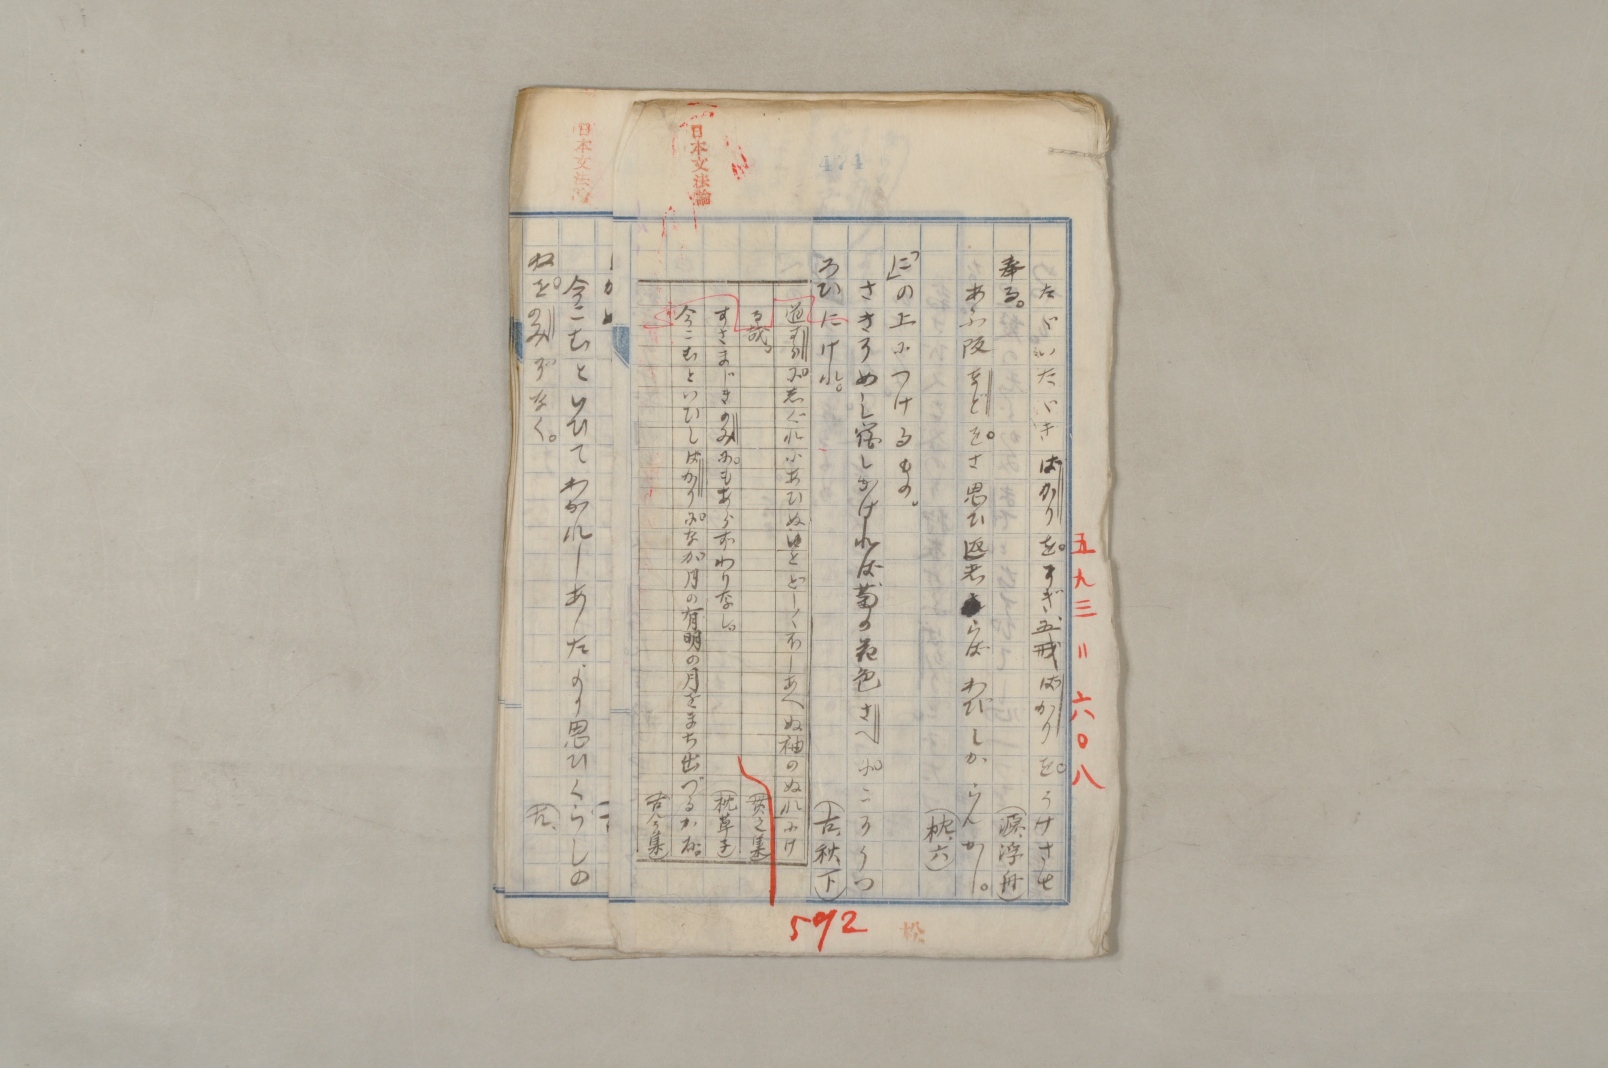 五九三=六〇八
たゞいたゞきばかりを。すぎ、五戒ばかりを。うけさせ
奉る。(源、浮舟)
あふ阪などを。さ思ひ返しならばわびしからんかし。
(枕、六)
「に」の上につけるもの。
さきそめし宿しかはれば菊の花色さへに。こそうつ
ろひにけれ。(古、秋下)
道すがらに。しぐれにあひぬいとどしくほしあへぬ袖のぬれにけ
る哉。(貫之集)
すさまじきのみに。もあらずわりなし。(枕草子)
今こむといひしばかりに。なが月の有明の月をまち出づるかな。
(古今集)
日本文法論
592
日本文法論
今こむといひてわかれしあしたより思ひくらしの
ねを。のみぞなく。(古、